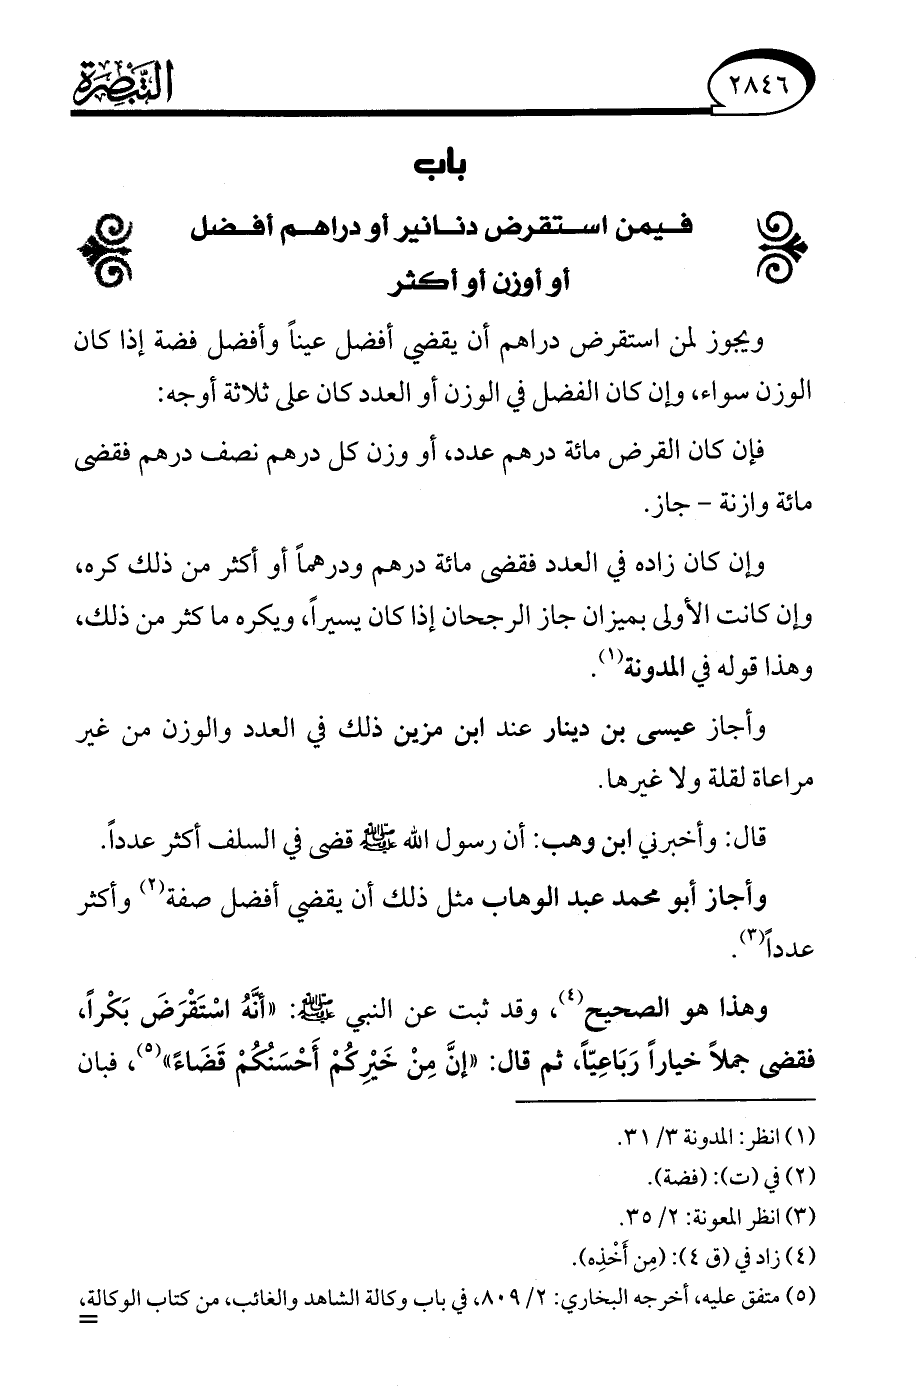 ٢٨٤٦
التبصرة
باب
فـيمن اسـتقرض دنـانير أو دراهـم أفـضل
أو أوزن أو أكثر
ويجوز لمن استقرض دراهم أن يقضي أفضل عيناً وأفضل فضة إذا كان
الوزن سواء، وإن كان الفضل في الوزن أو العدد كان على ثلاثة أوجه:
فإن كان القرض مائة درهم عدد، أو وزن كل درهم نصف درهم فقضى
مائة وازنة – جاز.
وإن كان زاده في العدد فقضى مائة درهم ودرهماً أو أكثر من ذلك كره،
وإن كانت الأولى بميزان جاز الرجحان إذا كان يسيراً، ويكره ما كثر من ذلك،
وهذا قوله في المدونة(١).
وأجاز عيسى بن دينار عند ابن مزين ذلك في العدد والوزن من غير
مراعاة لقلة ولا غيرها.
قال: وأخبرني ابن وهب: أن رسول الله ﷺ قضى في السلف أكثر عدداً.
وأجاز أبو محمد عبد الوهاب مثل ذلك أن يقضي أفضل صفة(٢) وأكثر
عدداً(٣).
وهذا هو الصحيح(٤)، وقد ثبت عن النبي ﷺ: «أَنَّهُ اسْتَقْرَضَ بَكْراً،
فقضى جملاً خياراً رَبَاعِيّاً، ثم قال: «إنَّ مِنْ خَيْرِكُمْ أَحْسَنُكُمْ قَضَاءً»(٥)، فبان
(١) انظر: المدونة ٣/ ٣١.
(٢) في (ت): (فضة).
(٣) انظر المعونة: ٢/ ٣٥.
(٤) زاد في (ق ٤): (مِن أَخْذِه).
(٥) متفق عليه، أخرجه البخاري: ٢/ ٨٠٩، في باب وكالة الشاهد والغائب، من كتاب الوكالة،
=